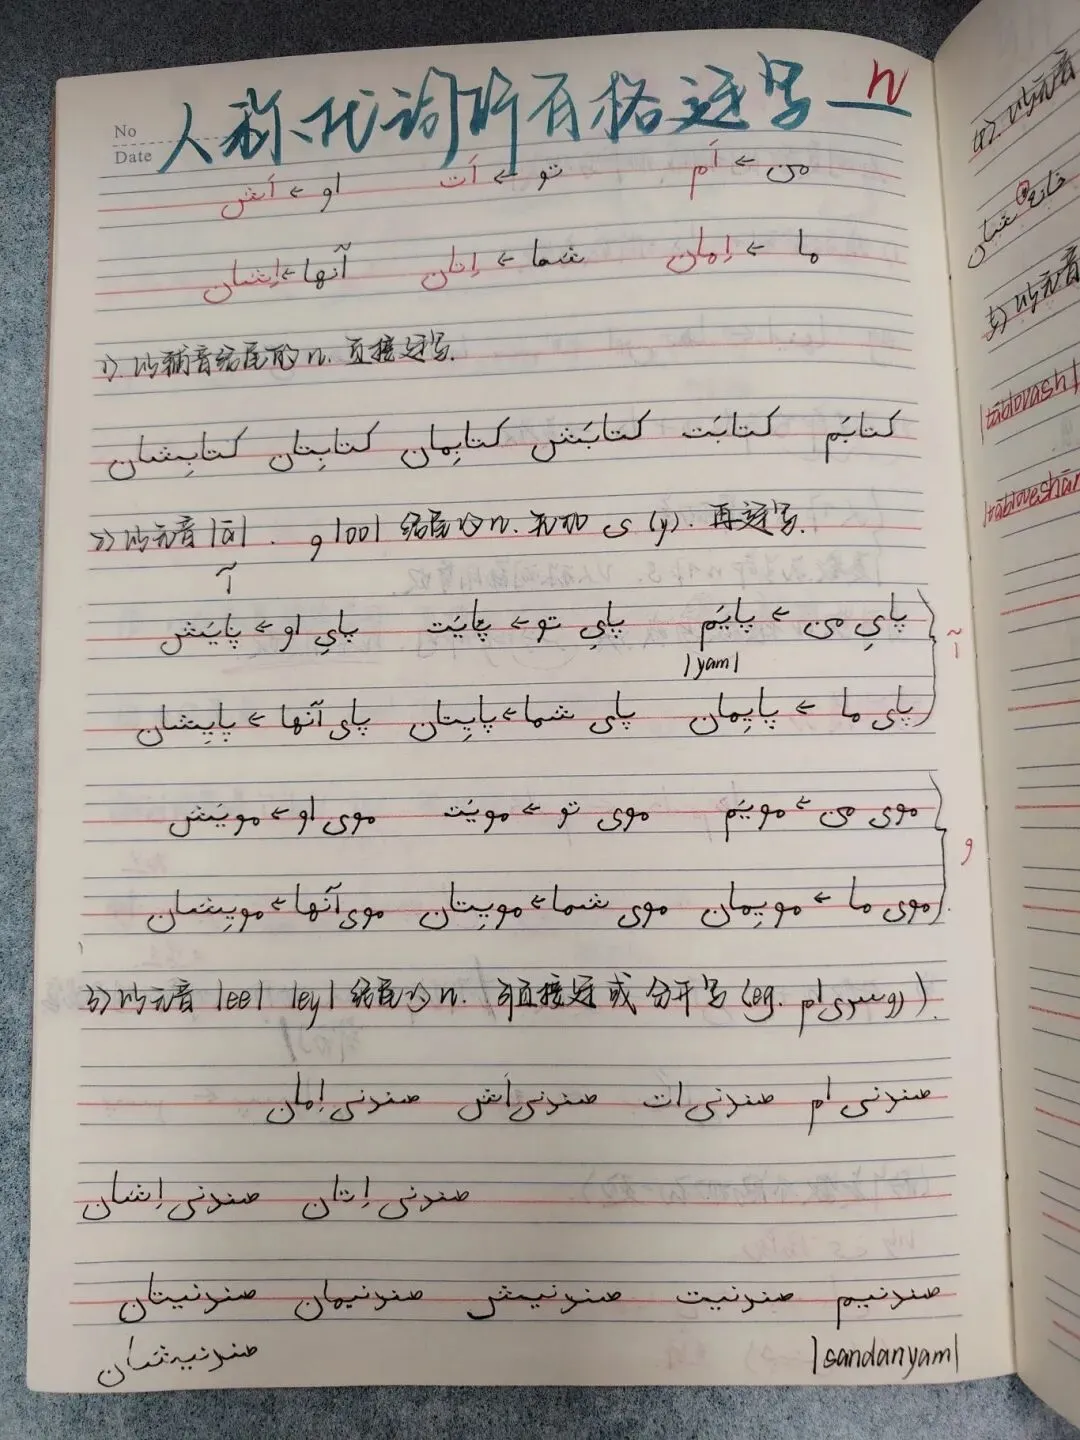 No
Date
人称代词所有格连写 n
من ← اَم تو ← اَت او ← اَش
ما ← اِمان شما ← اِتان آنها ← اِشان
1). 以辅音结尾的 n. 直接连写.
کتابَم کتابَت کتابَش کتابِمان کتابِتان کتابِشان
2) 以元音 |ā| . و |oo| 结尾的 n. 先加 ی (y). 再连写.
آ
پایِ من ← پایَم پایِ تو ← پایَت پایِ او ← پایَش
|yam|
آ
پای ما ← پایِمان پای شما ← پایِتان پای آنها ← پایِشان
موی من ← مویَم موی تو ← مویَت موی او ← مویَش
و
موی ما ← مویِمان موی شما ← مویِتان موی آنها ← مویِشان
3) 以元音 |ee| |ey| 结尾的 n. 可直接连或分开写 (eg. روسری ام).
صندنی ام صندنی ات صندنی اَش صندنی اِمان
صندنی اِتان صندنی اِشان
صندنیم صندنیت صندنیش صندنیمان صندنیتان
صندنیشان
|sandanyam|
خانه شان
|tāblovash|
|tābloveshān|